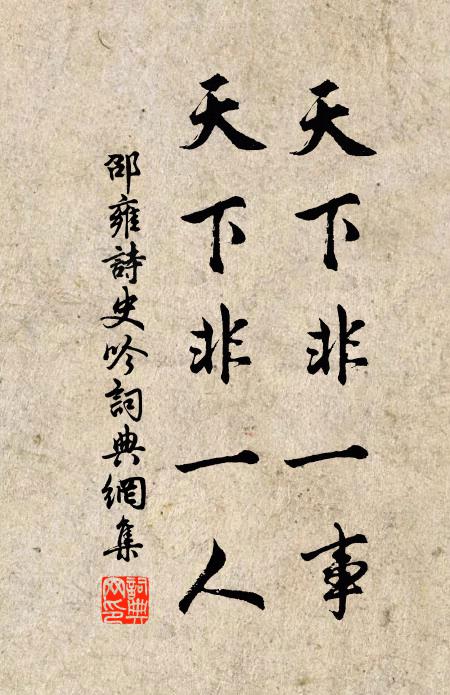 天下非一事
天下非一人
邵雍詩史吟詞典網集
詞典网印